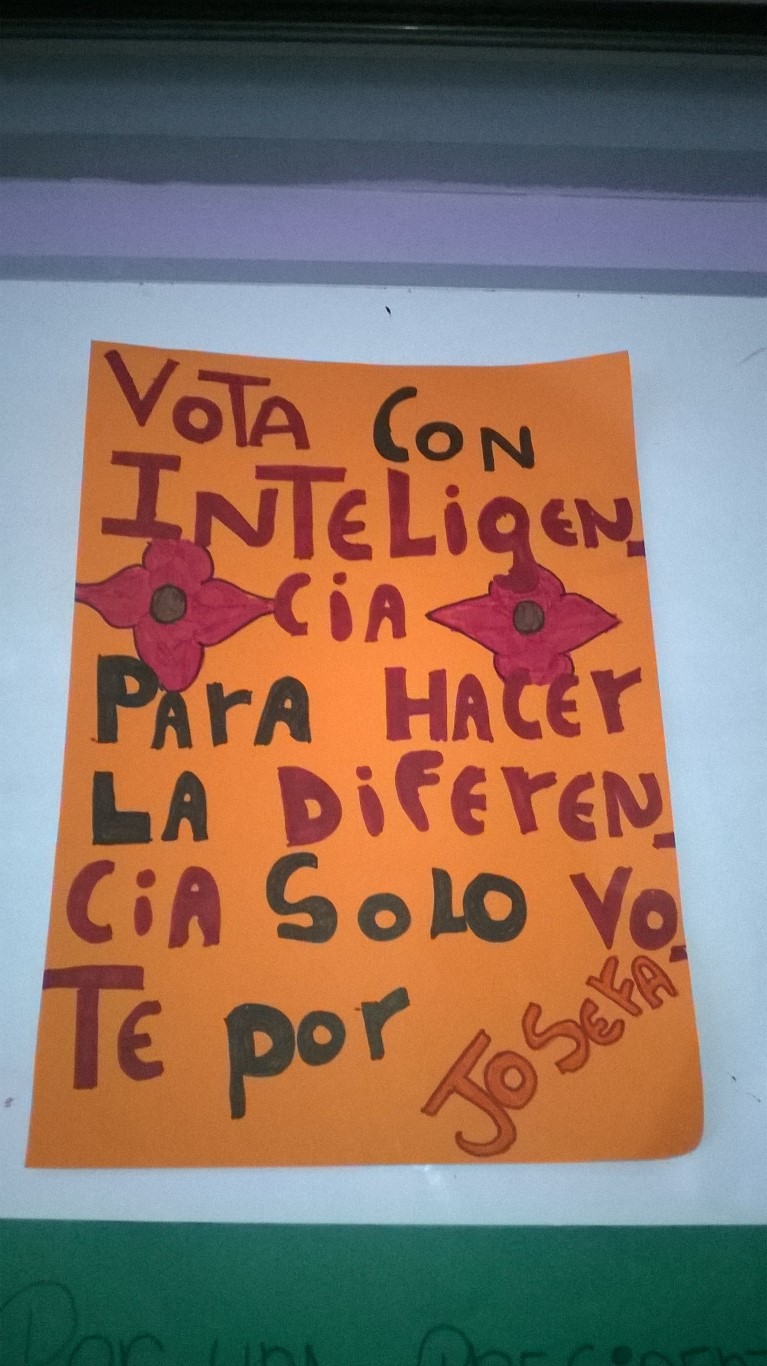 VoTA CoN
INTELigEN_
CiA
PArA HACEr
LA DiFErEN_
CiA SoLo Vo_
TE por JoSEFA
Por UN PrESiDENT